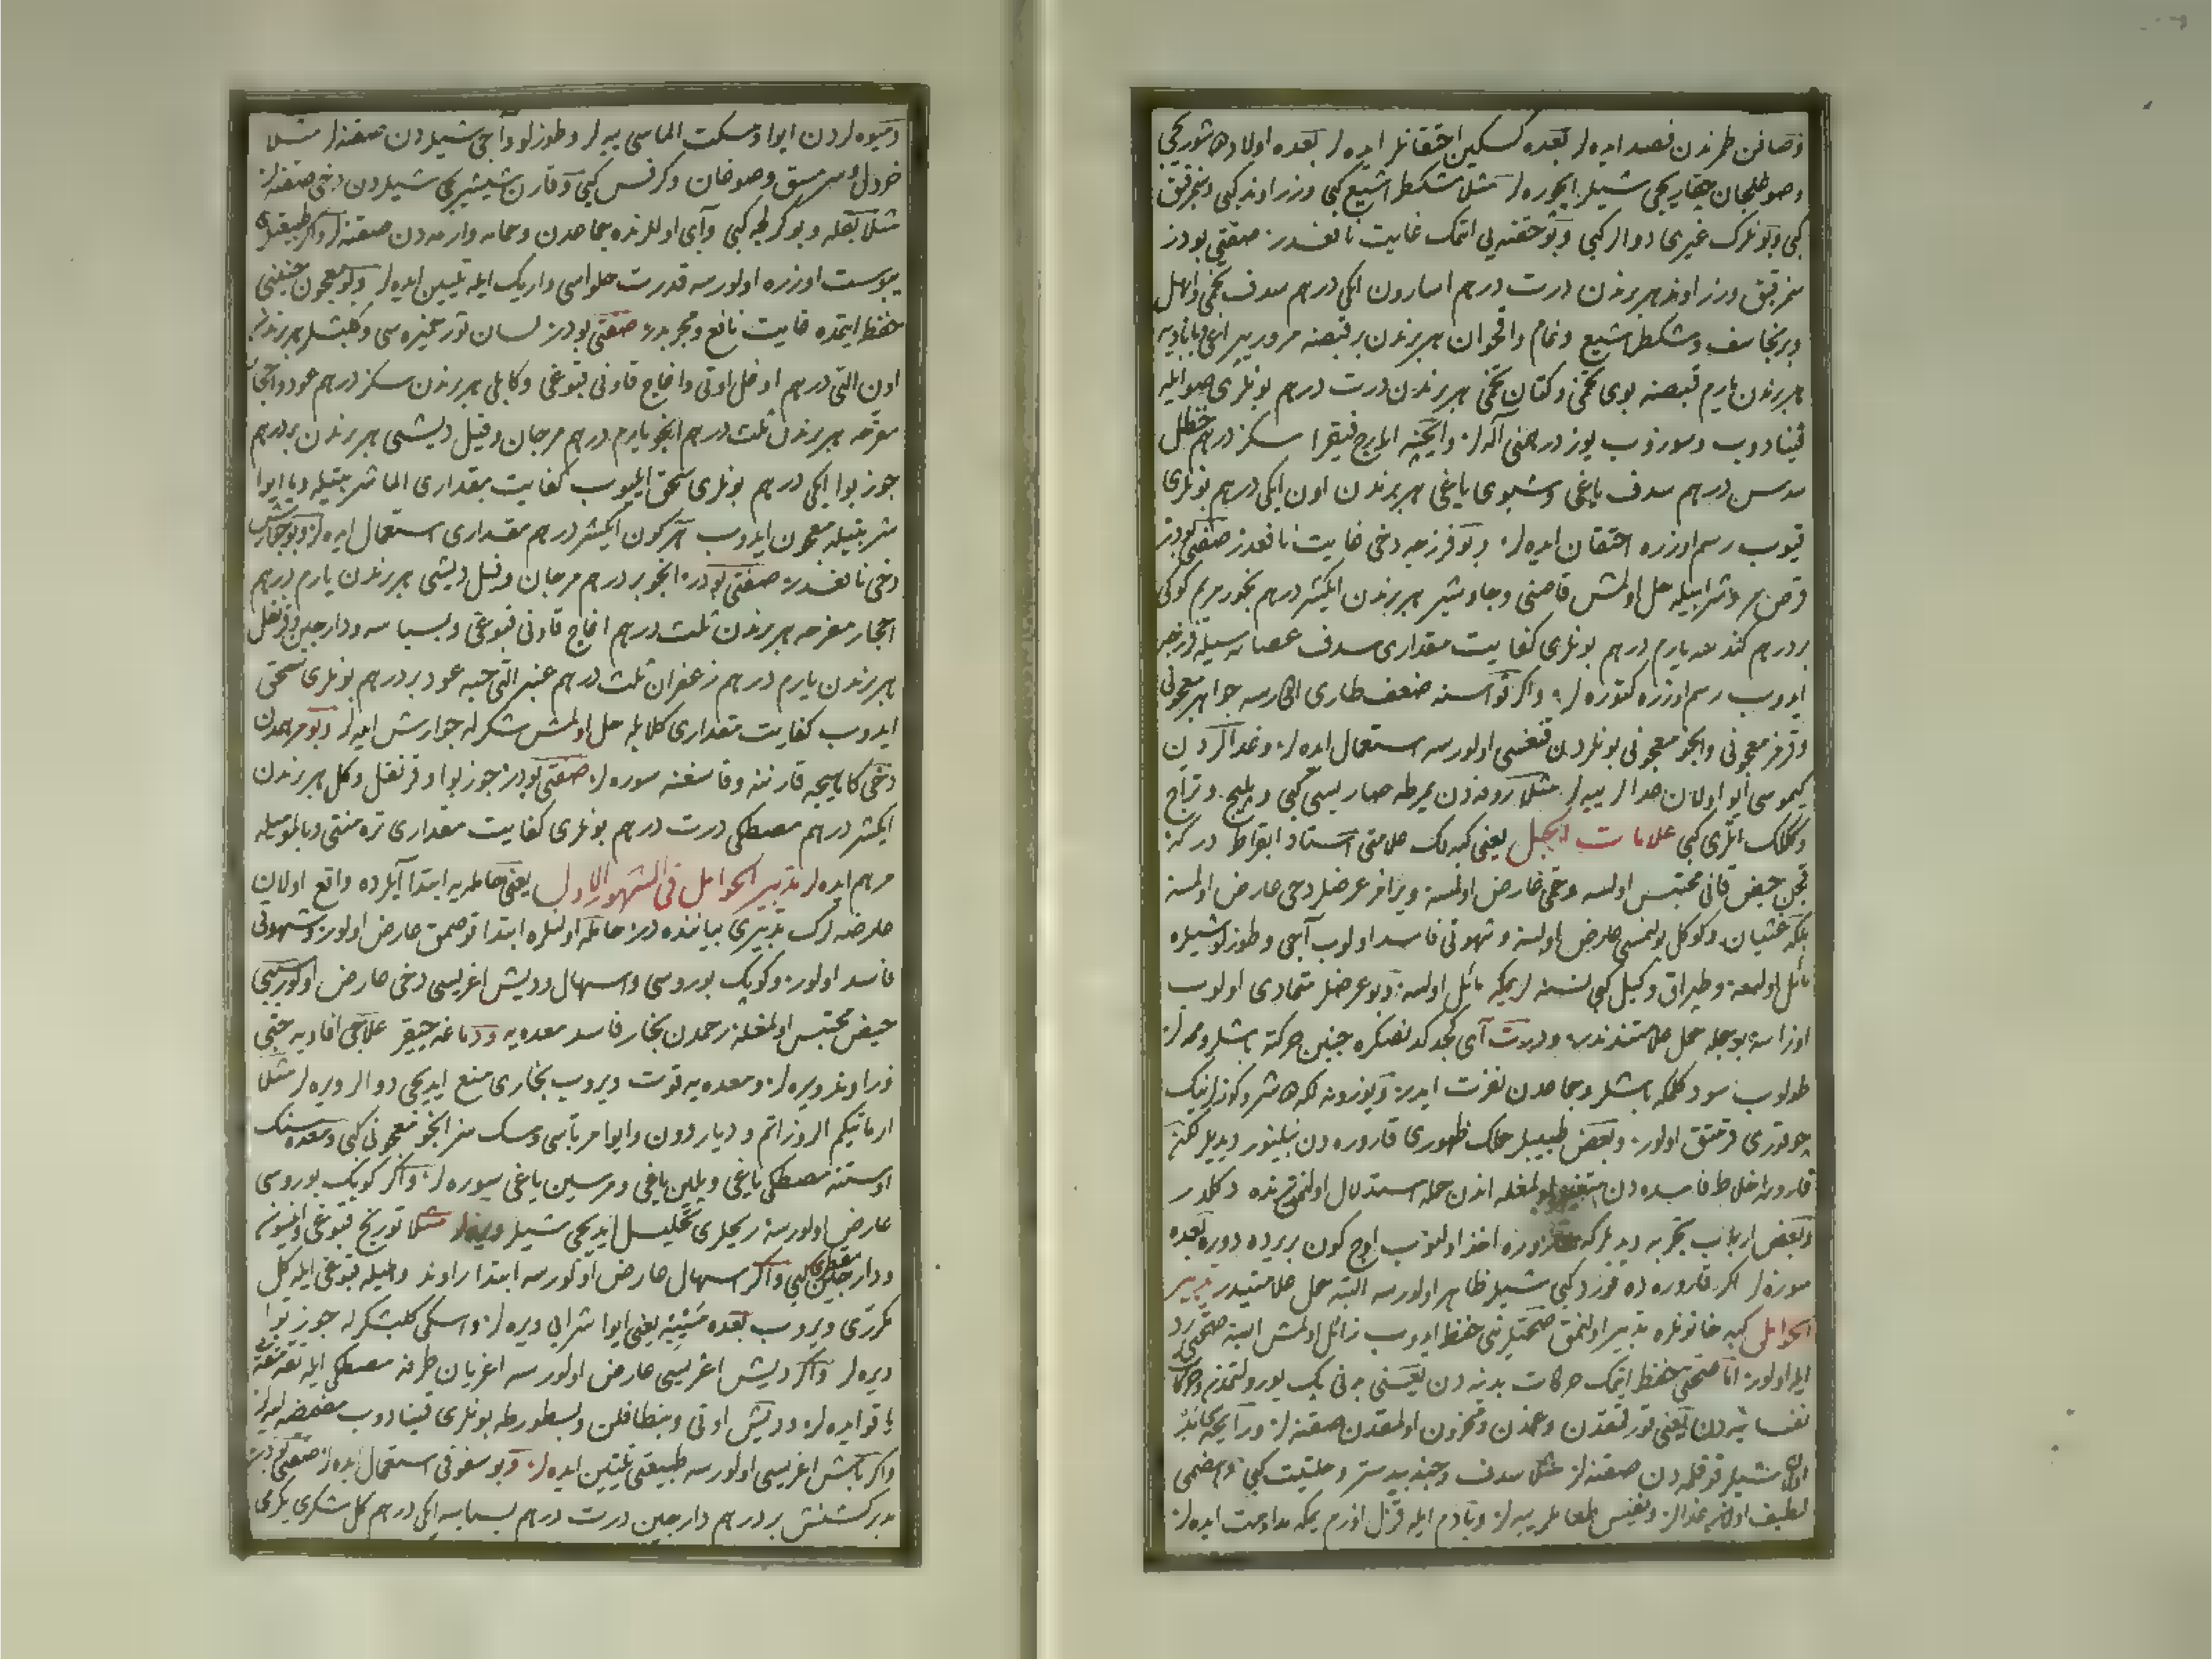 و صافن طمرندن فصد ایده لر بعده کسکین احتقانلر ایده لر بعده اولاد
و صوغلجان چقاریجی شیلر ایچوره لر مثلا مشکطرا مشیع کبی و زراوند کبی و سنجرفیق
کبی و بونلرک غیری دوالر کبی و بو حقنه یی اتمک غایت نافعدر صفتی بودر
زراوند هر برندن درت درهم اسارون ایکی درهم سدف تخمی و ابهل
و برنجاسف و مشکطرا مشیع و نمام و اقحوان هر برندن بر قبضه
هر برندن یارم قبضه بوی تخمی و کتان تخمی هر برندن درت درهم بونلری صو ایله
قینادوب و سوزوب یوز درهمنی آله لر و ایچنه ایارج فیقرا سکز درهم حنظل
سدس درهم سدف یاغی و شبوی یاغی هر برندن اون ایکی درهم بونلری
قیوب رسم اوزره احتقان ایده لر و بو فرزجه دخی غایت نافعدر صفتی بودر
قرص مر و شراب ایله حل اولمش قاصنی و جاوشیر هر برندن ایکیشر درهم بخور مریم کوکی
بر درهم کندسه یارم درهم بونلری کفایت مقداری سدف عصاره سیله فرزجه
ایدوب رسم اوزره کتوره لر و اکر قواسنه ضعف طاری اولورسه جواهر معجونی
و قرمز معجونی و انجو معجونی بونلردن قنغیسی اولورسه استعمال ایده لر و غدالردن
کیموسی ایو اولان غدالر ییه لر مثلا رفودن یمرطه صاریسی کبی و پلیج و دراج
و ککلک اتلری کبی علامات الحبل یعنی کبه لک علامتی استاد ابقراط درکه
قچن حیض قانی محتبس اولسه و حمی عارض اولمسه و بر اخر عرضلر دخی عارض اولمسه
بلکه غثیان و کوکل بولنمسی عارض اولسه و شهوتی فاسد اولوب آجی و طوزلو شیلره
مائل اولمسه و طپراق و کیل کبی نسنه لر یمکه مائل اولسه و بو عرضلر متمادی اولوب
اوزانسه بو جمله حمل علامتندندر و درت آی کچدکدنصکره جنین حرکته باشلر و ممه لر
طولوب سود کلمکه باشلر و جماعدن نفرت ایدر و یوزونه لکه دوشر و کوزلرینک
چورتوری قرمتق اولور و بعض طبیبلر حملک ظهوری قاروره دن بیلنور دیدیلر لکن
قاروره اخلاط فاسده دن متغیر اولمغله اندن حمله استدلال اولنمق نده دکلدر
و بعض ارباب تجربه دیدیلرکه قاروره اخذ اولنوب اوچ کون بر یرده دوره بعده
سوزه لر اکر قاروره ده قورد کبی شیلر ظاهر اولورسه البته حمل علامتیدر تدبیر
الحوامل کبه خاتونلره تدبیر اولنمق صحتلرینی حفظ ایدوب زائل اولمش ایسه صحتی رد
ایله اولور اما صحتی حفظ ایتمک حرکات بدنیه دن یعنی یوک یورولتمدن و حرکات
نفسانیه دن یعنی قورقمقدن و غمدن و محزون اولمقدن صقنه لر
اولان شیلر قوقمه دن صقنه لر مثلا سدف و جند بیدستر و حلتیت کبی و هضمی
لطیف اولان غدالر و نفیس طعاملر ییه لر و بادام ایله قزل اوزم یمکه مداومت ایده لر
و میوه لردن ایوا و مسکت الماسی ییه لر و طوزلو و آجی شیلردن صقنه لر مثلا
خردل و سرمسق و صوغان و کرفس کبی و قارن شیشیریجی شیلردن دخی صقنه لر
مثلا بقله و بوکرلجه کبی و آی اوللرنده جماعدن و حمامه وارمه دن صقنه لر و اکر طبیعتلری
یبوست اوزره اولورسه قدرت حلواسی و اریک ایله تلیین ایده لر و بو معجون جنینی
حفظ ایتمده غایت نافع و مجربدر صفتی بودر لسان ثور خمیره سی و کلبشکر هر برندن
اون التی درهم اوغل اوتی و اغاج قاونی قبوغی و کابلی هر برندن سکز درهم عود و احجار
مفرحه هر برندن ثلث درهم انجو یارم درهم مرجان و فیل دیشی هر برندن بر درهم
جوز بوا ایکی درهم بونلری سحق ایلیوب کفایت مقداری الما شربتیله و یا ایوا
شربتیله معجون ایدوب هر کون ایکیشر درهم مقداری استعمال ایده لر و بو جوارش
دخی نافعدر صفتی بودر انجو بر درهم مرجان و فیل دیشی هر برندن یارم درهم
احجار مفرحه هر برندن ثلث درهم اغاج قاونی قبوغی و بسباسه و دارچین و قرنفل
هر برندن یارم درهم زعفران ثلث درهم عنبر التی حبه عود بر درهم بونلری سحق
ایدوب کفایت مقداری کلابله حل اولمش شکرله جوارش ایده لر و بو مرهمدن
دخی کاهیجه قارننه و قاسغنه سوره لر صفتی بودر جوز بوا و قرنفل و کل هر برندن
ایکیشر درهم مصطکی درت درهم بونلری کفایت مقداری تره منتی و بالمومیله
مرهم ایده لر تدبیر الحوامل فی الشهور الاول یعنی حامله یه ابتدا آیلرده واقع اولان
عارضه لرک تدبیری بیاننده در حامله اولنلره ابتدا قوصمق عارض اولور و شهوتی
فاسد اولور و کوبک بوروسی و اسهال و دیش اغریسی دخی عارض اولور سببی
حیض محتبس اولمغله رحمدن بخار فاسد معده یه و دماغه چیقر علاجی افاویه حبی
زراوند ویره لر و معده یه قوت ویروب بخاری منع ایدیجی دوالر ویره لر مثلا
ارماتیکم الروزاتم و دیاردون و ایوا مرباسی و سکسز انجو معجونی کبی و معده سنک
اوستنه مصطکی یاغی و پلین یاغی و مرسین یاغی سوره لر و اکر کوبک بوروسی
عارض اولورسه ریحلری تحلیل ایدیجی شیلر ویره لر مثلا تورنج قبوغی و انیسون
و دارچین مصطکی کبی و اکر اسهال عارض اولورسه ابتدا راوند و هلیله قبوغی ایله کل
مکرری ویروب بعده میبه یعنی ایوا شرابی ویره لر و اسکی کلبشکرله جوز بوا
ویره لر و اکر دیش اغریسی عارض اولورسه اغریان طرفه مصطکی ایله
یاقو ایده لر و دیش اوتی و بنطافلن و بسطورطه بونلری قینادوب مضمضه ایده لر
و اکر باش اغریسی اولورسه طبیعتی تلیین ایده لر و بو سفوفی استعمال ایده لر صفتی بودر
مدبر کشنش بر درهم دارچین درت درهم بسباسه ایکی درهم کل شکری یکرمی